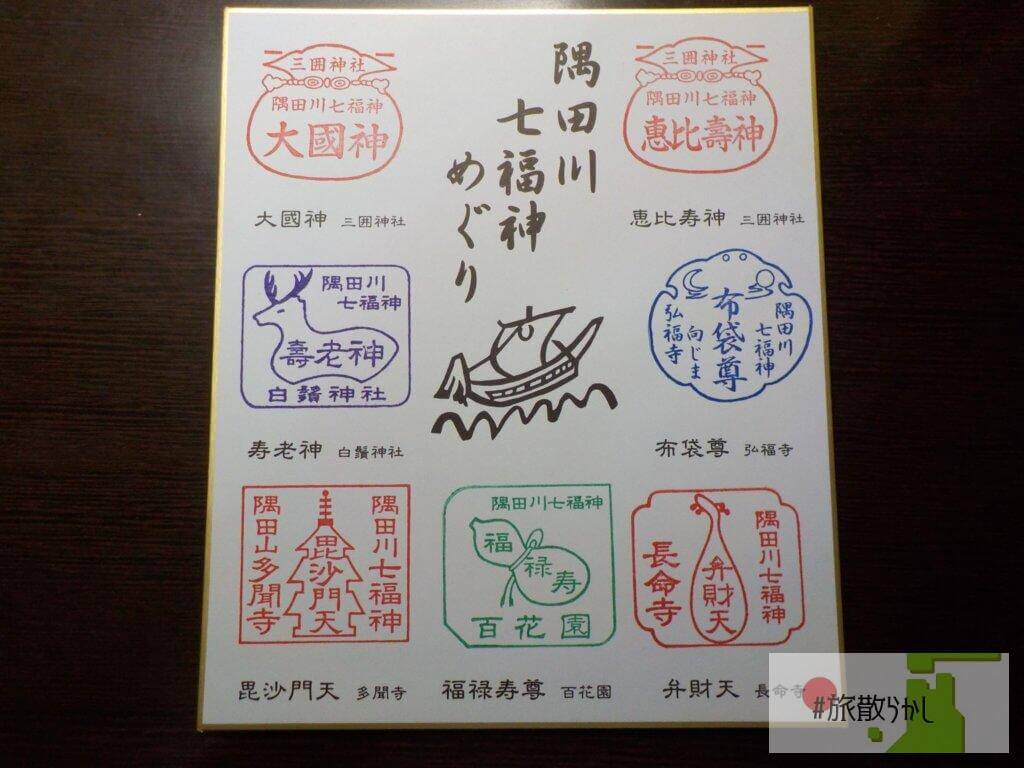 隅田川
七福神
めぐり
三囲神社
隅田川七福神
恵比壽神
恵比寿神 三囲神社
三囲神社
隅田川七福神
大國神
大國神 三囲神社
隅田川
七福神
布袋尊
向じま
弘福寺
布袋尊 弘福寺
隅田川
七福神
壽老神
白鬚神社
寿老神 白鬚神社
隅田川七福神
弁財天
長命寺
弁財天 長命寺
隅田川七福神
福
禄
寿
百花園
福禄寿尊 百花園
隅田川七福神
毘沙門天
隅田山多聞寺
毘沙門天 多聞寺
#旅散らかし